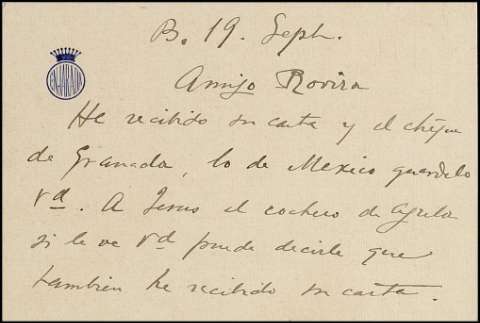 B. 19. Seph.
ENJARADA
Amigo Rovira
He recibido su carta y el chéque
de Granada, lo de Mexico guardelo
Vd. A Jesus el cochero de Agrela
si le ve Vd puede decirle que
tambien he recibido su carta.